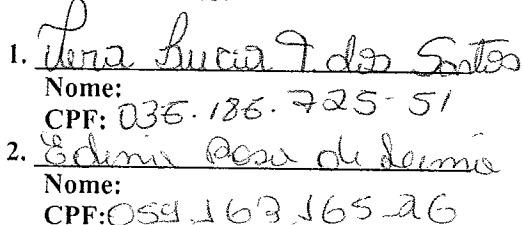 1. Vera Lucia T. dos Santos
Nome:
CPF: 036.186.725-51
2. Edima Rosa de
Nome:
CPF:059.163.165-26